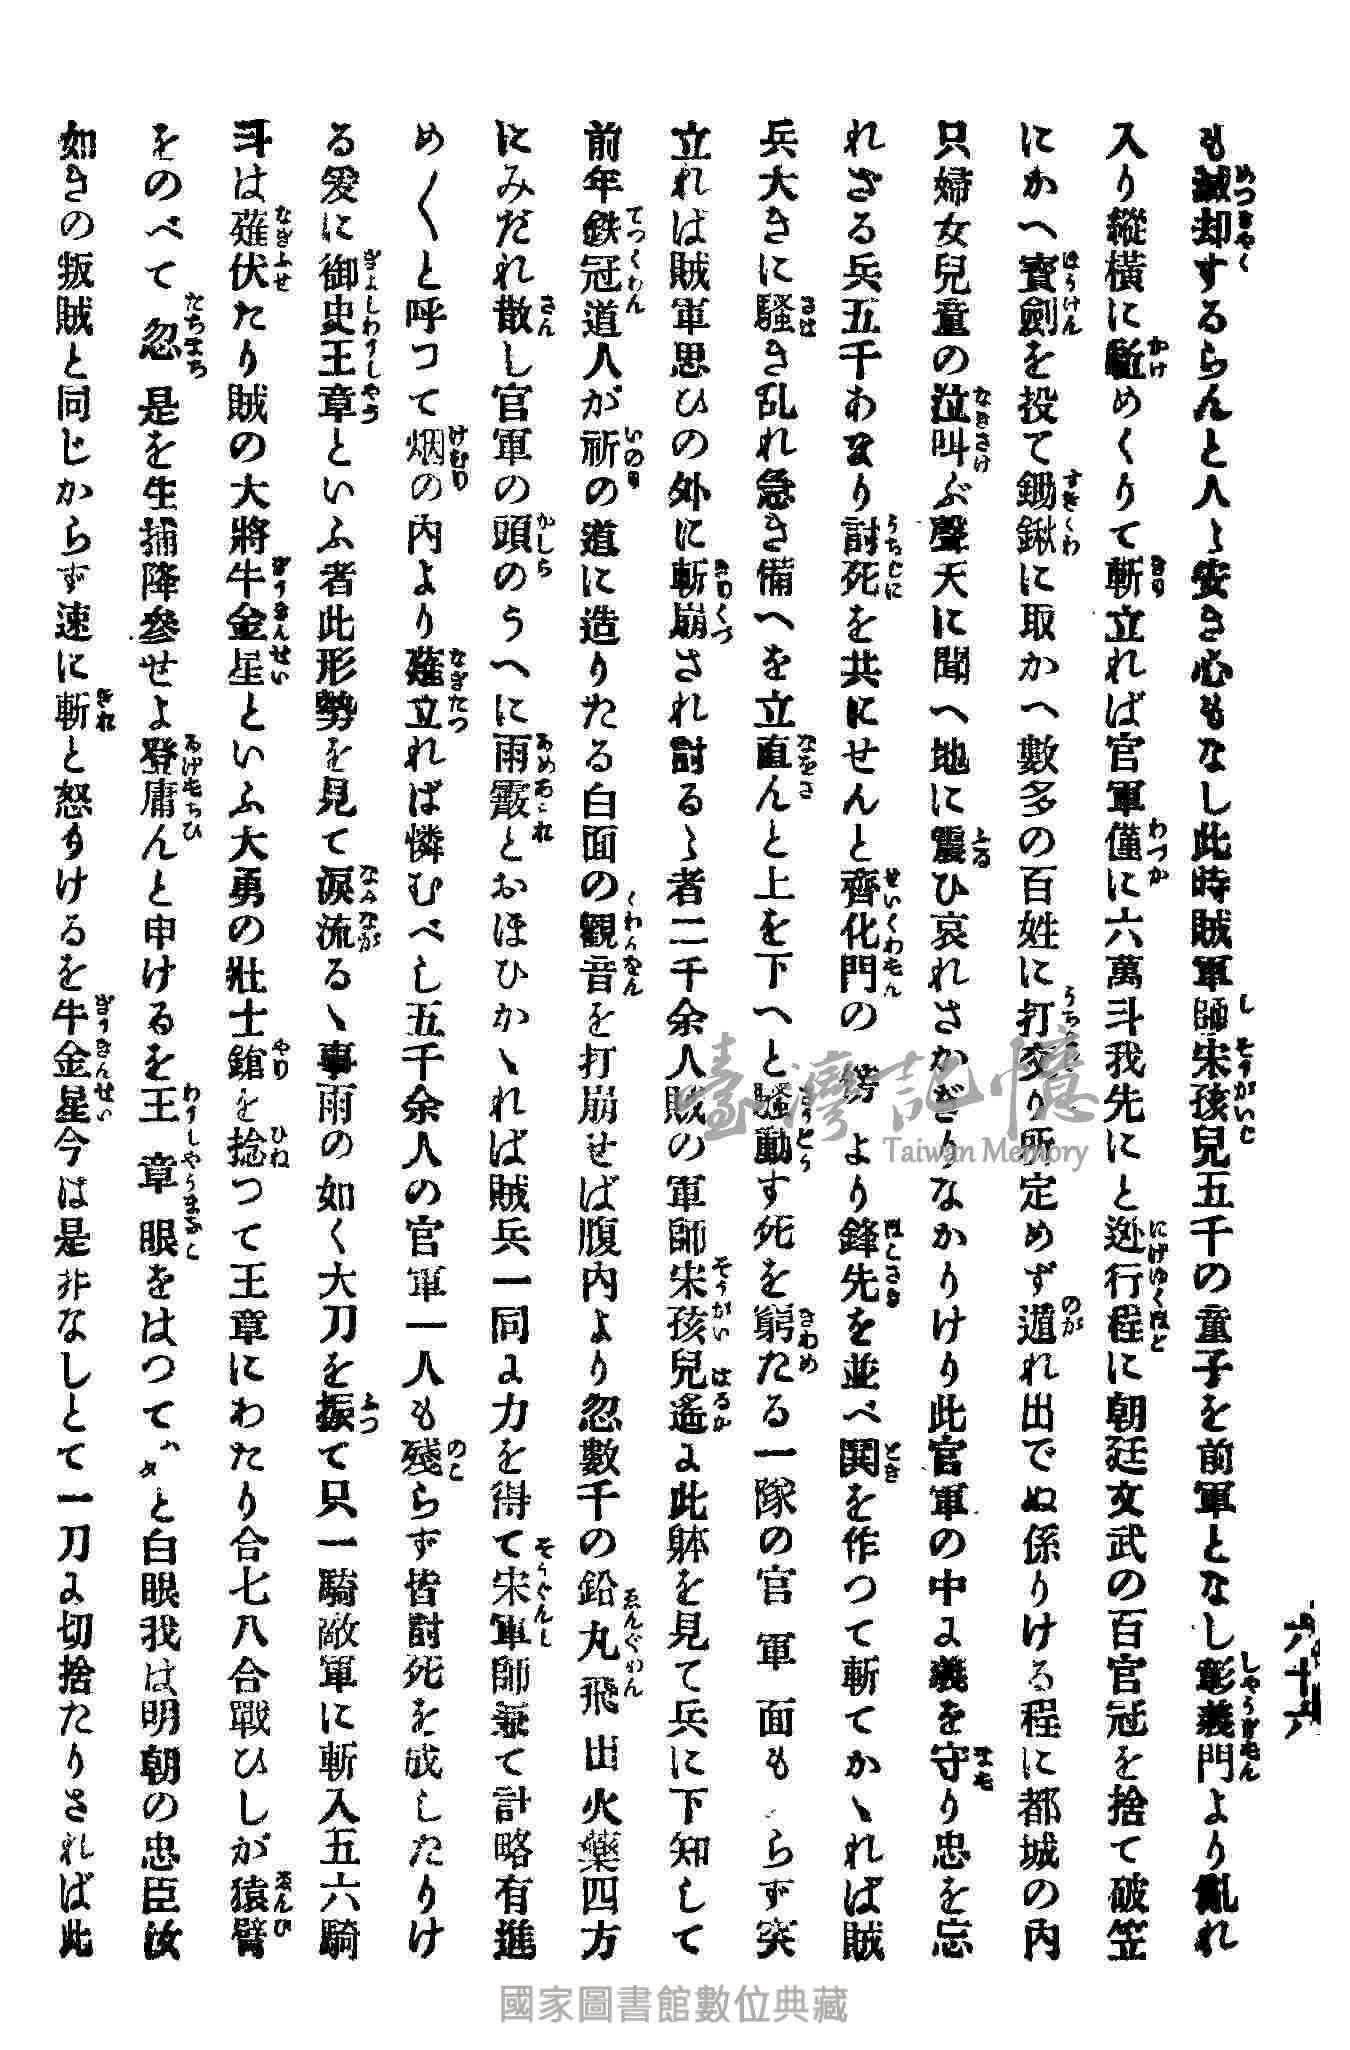 も滅却するらんと人〻安き心もなし此時賊軍師宋孩兒五千の童子を前軍となし彰義門より亂れ
入り縱橫に駈めくりて斬立れば官軍僅に六萬斗我先にと迯行程に朝廷文武の百官冠を捨て破笠
にかへ寶劍を投て鋤鍬に取かへ數多の百姓に打交り所定めず遁れ出でぬ係りける程に都城の内
只婦女兒童の泣叫ぶ聲天に聞へ地に震ひ哀れさかぎりなかりけり此官軍の中に義を守り忠を忘
れざる兵五千わまり討死を共にせんと齊化門の より鋒先を並べ鬨を作つて斬てかゝれば賊
兵大きに騷き乱れ急き備へを立直んと上を下へと騷動す死を窮たる一隊の官軍面も らず突
立れば賊軍思ひの外に斬崩され討るゝ者二千余人賊の軍師宋孩兒遙に此躰を見て兵に下知して
前年鉄冠道人が祈の道に造りたる白面の觀音を打崩せば腹内より忽數千の鉛丸飛出火藥四方
にみだれ散し官軍の頭のうへに雨霰とおほひかゝれば賊兵一同に力を得て宋軍師兼て計略有進
め〱と呼つて烟の内より薙立れば憐むべし五千余人の官軍一人も殘らず皆討死を成したりけ
る爰に御史王章といふ者此形勢を見て淚流るゝ事雨の如く大刀を振て只一騎敵軍に斬入五六騎
斗は薙伏たり賊の大將牛金星といふ大勇の壯士鎗を捻つて王章にわたり合七八合戰ひしが猿臂
をのべて忽是を生捕降參せよ登庸んと申けるを王章眼をはつて と白眼我は明朝の忠臣汝
如きの叛賊と同じからず速に斬と怒りけるを牛金星今は是非なしとて一刀に切捨たりされば此
六十六
臺灣記憶
Taiwan Memory
國家圖書館數位典藏